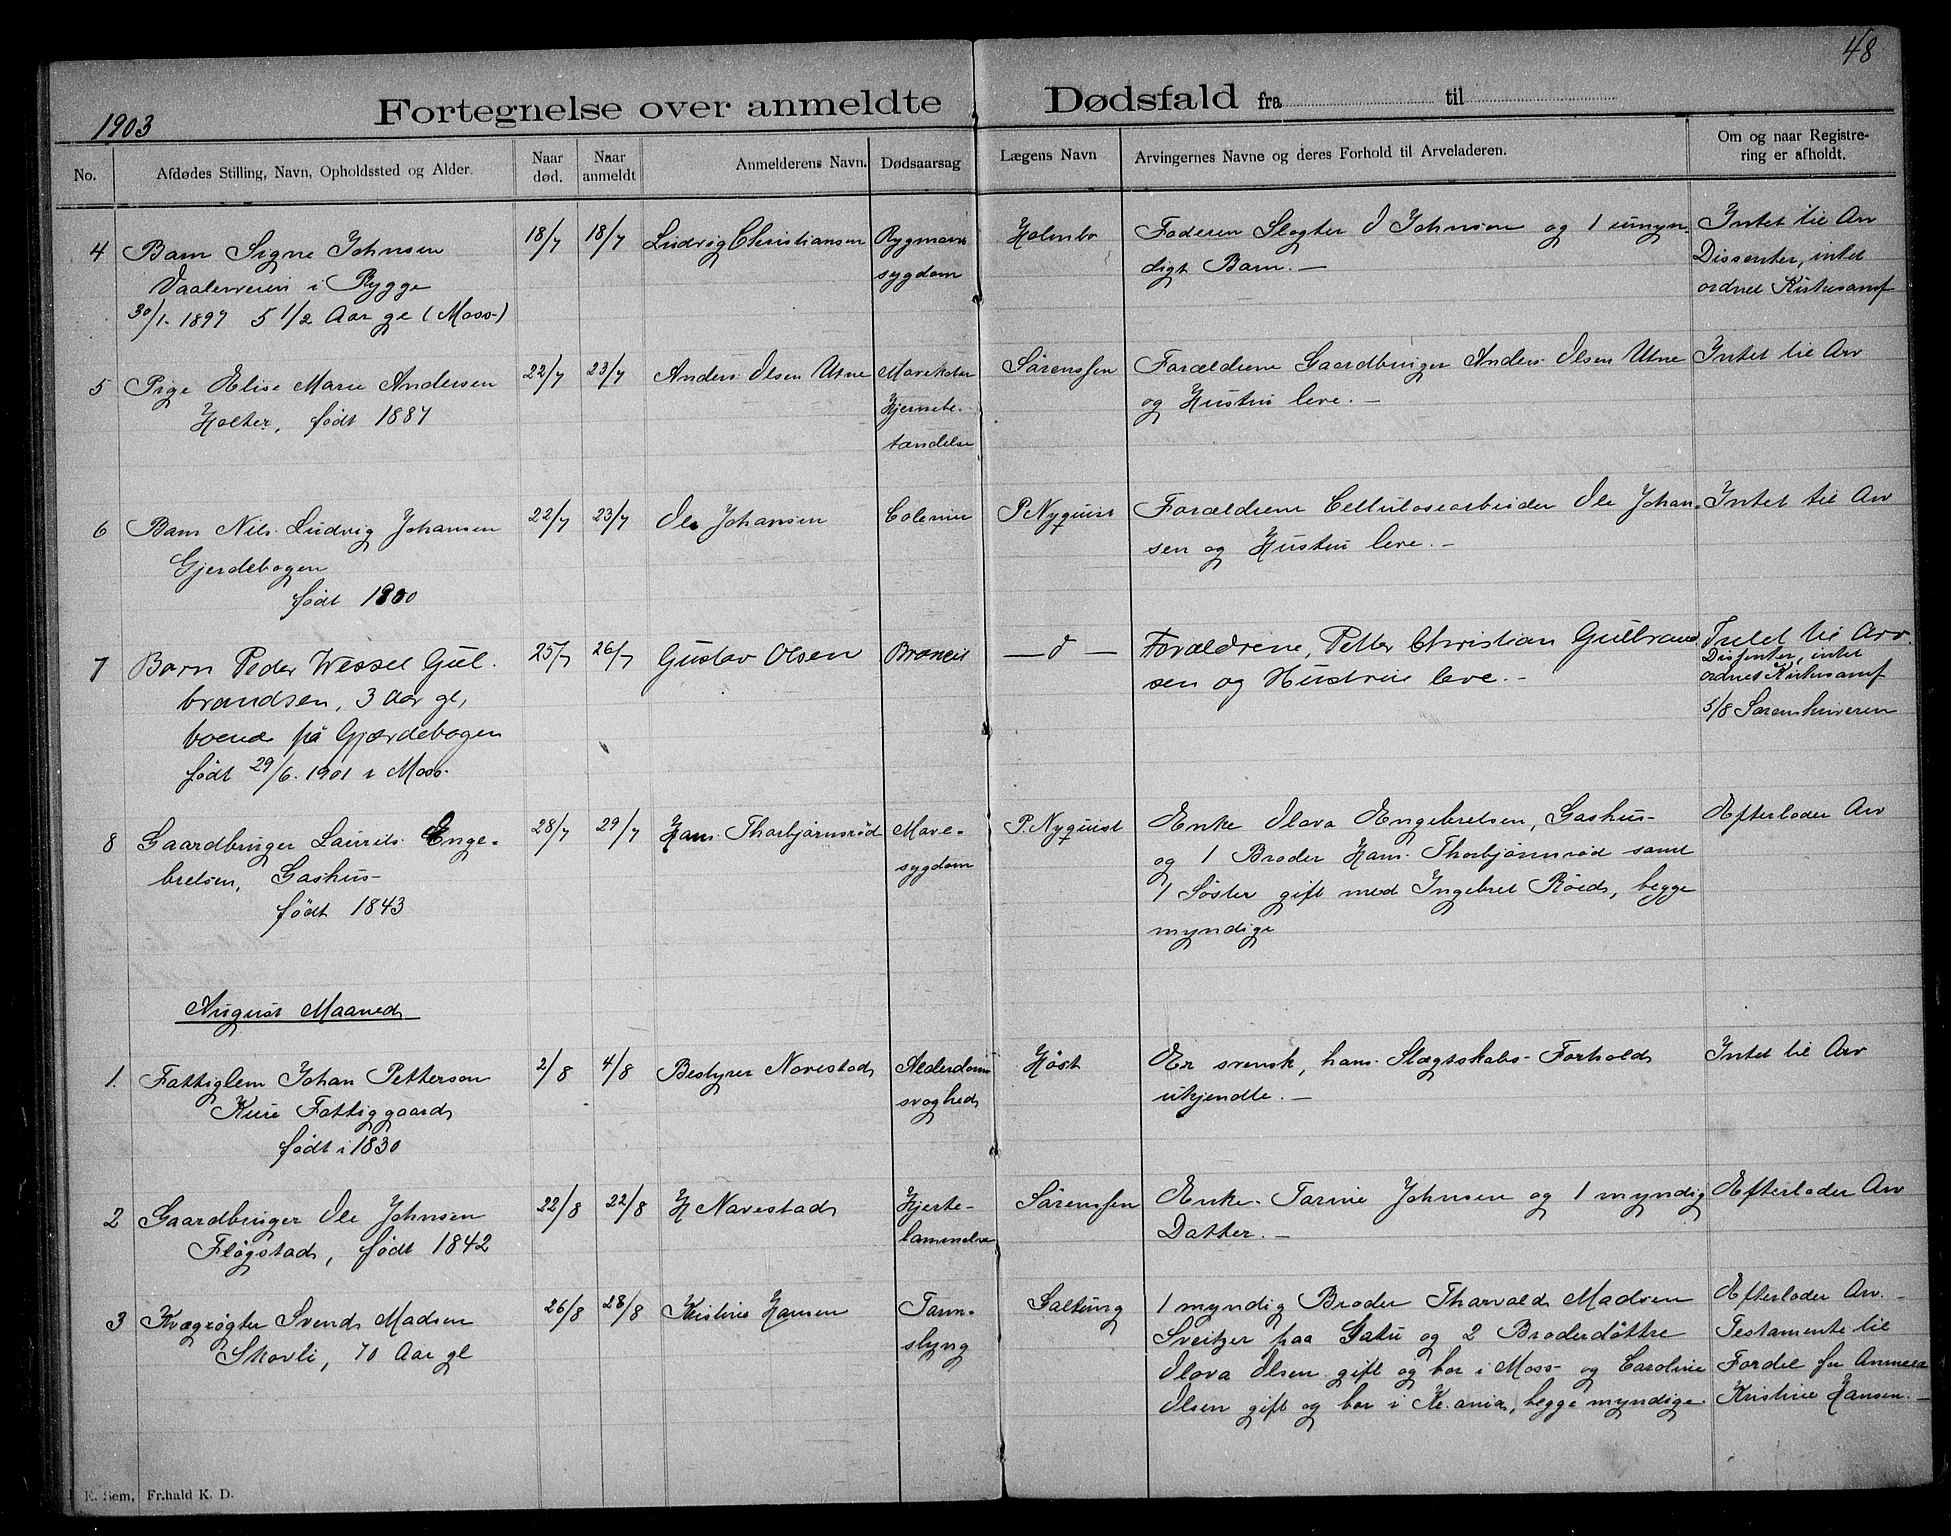 48
1903
Fortegnelse over anmeldte Dødsfald fra til
No.
Afdødes Stilling, Navn, Opholdssted og Alder.
Naar død.
Naar anmeldt
Anmelderens Navn.
Dødsaarsag
Lægens Navn
Arvingernes Navne og deres Forhold til Arveladeren.
Om og naar Registre-
ring er afholdt.
4 Barn Signe Johnsen 18/7 18/7 Ludvig Christiansen Rygmarvs Holmbo Faderen Slagter O Johnson og 1 umyn- Intet til Arv
Vaalerveien i Rygge sygdom digt Barn. — Dissenter, intet
30/1. 1897 5 1/2 Aar gl (Moss) ordnet Kirkesamf
5 Pige Elise Marie Andersen 22/7 23/7 Anders Olsen Utne Mavekatar Sørenssen Forældrene Gaardbruger Anders Olsen Utne Intet til Arv
Holter, født 1887 Hjernebe- og Hustru leve. —
tændelse
6 Barn Nils Ludvig Johansen 22/7 23/7 Ole Johansen Colerin P. Nyquist Forældrene Cellulosearbeider Ole Johan- Intet til Arv
Gjerdebogen sen og Hustru leve. —
født 1900
7 Barn Peder Wessel Gul- 25/7 26/7 Gustav Olsen — d — Forældrene, Petter Christian Gulbrand Intet til Arv.
brandsen, 3 aar gl, sen og Hustrue leve. — Dissenter, intet
boende på Gjærdebogen ordnet Kirkesamf
født 29/6. 1901 i Moss. 5/8 Sorenskriveren
8 Gaardbruger Laurits Enge- 28/7 29/7 Hans Thorbjørnsrød Mave- P. Nyquist Enke Olava Engebretsen, Gashus- Efterlader Arv
bretsen, Gashus- sygdom og 1 Broder Hans Thorbjørnsrød samt
født 1843 1 Søster gift med Ingebret Røed, begge
myndige
August Maaned
1. Fattiglem Johan Petterson 2/8 4/8 Bestyrer Navestad Alderdoms Høst Er svensk, hans Slægtskabs-Forhold Intet til Arv
Kure Fattiggaard svaghed ukjendte. —
født i 1830
2 Gaardbruger Ole Johnsen 22/8 22/8 H Navestad Hjerte- Sørenssen Enke Tarine Johnsen og 1 myndig Efterlader Arv
Fløgstad, født 1842 lammelse Datter. —
3 Kvægrøgter Svend Madsen 26/8 28/8 Kristine Hansen Tarm- Galtung 1 myndig Broder Tharvald Madsen Efterlader Arv. —
Skovli, 70 Aar gl slyng Sveitzer paa og 2 Broderdøttre Testamente til
Olava Olsen gift og bor i Moss og Caroline Fordel for Anmeld
Olsen gift og bor i Kr.ania, begge myndige Kristine Hansen. —
E. Sem, Fr.hald K. D.